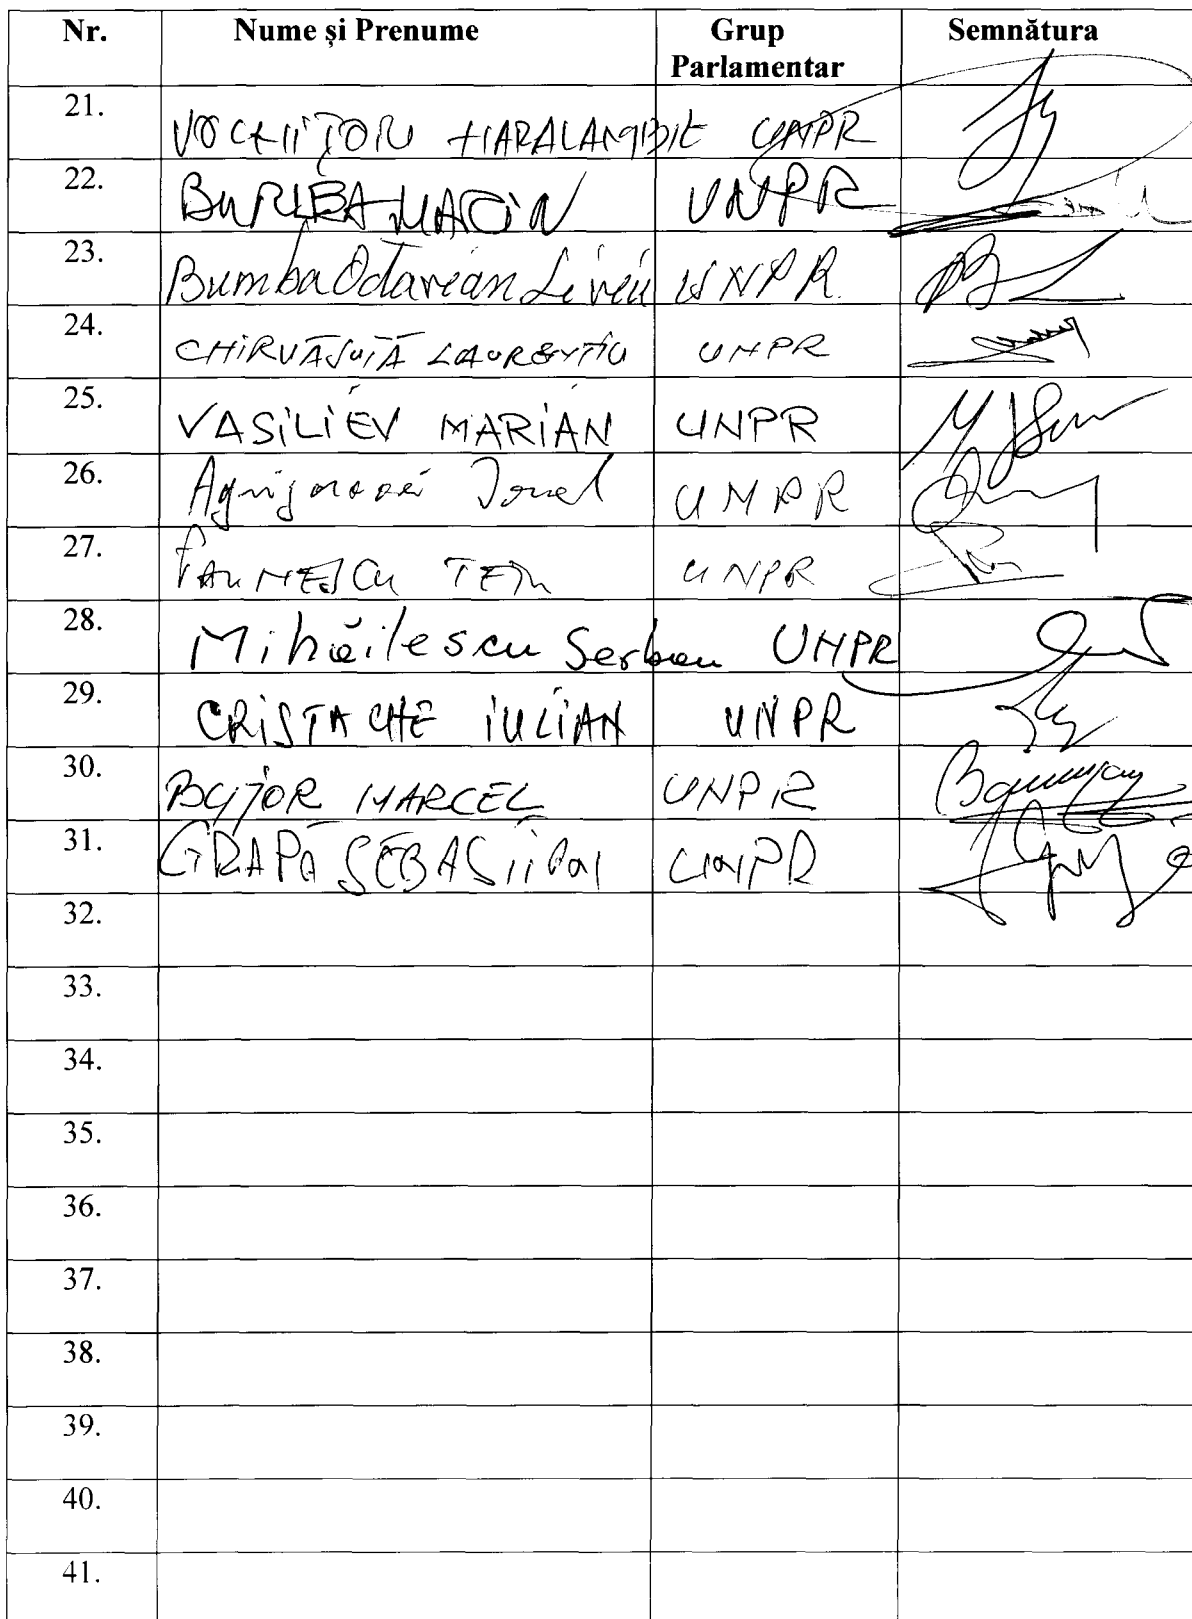 Nr. Nume și Prenume Grup Parlamentar Semnătura
21. VOCHIȚOIU HARALAMBIE UNPR
22. BURLEA MARIN UNPR
23. Bumba Octavian Liviu UNPR
24. CHIRVĂSUȚĂ LAURENȚIU UNPR
25. VASILIEV MARIAN UNPR
26. Agrigoroaei Ionel UNPR
27. PĂUNESCU TEIU UNPR
28. Mihăilescu Serban UNPR
29. CRISTACHE IULIAN UNPR
30. BUJOR MARCEL UNPR
31. GRAPĂ SEBASTIAN UNPR
32.
33.
34.
35.
36.
37.
38.
39.
40.
41.